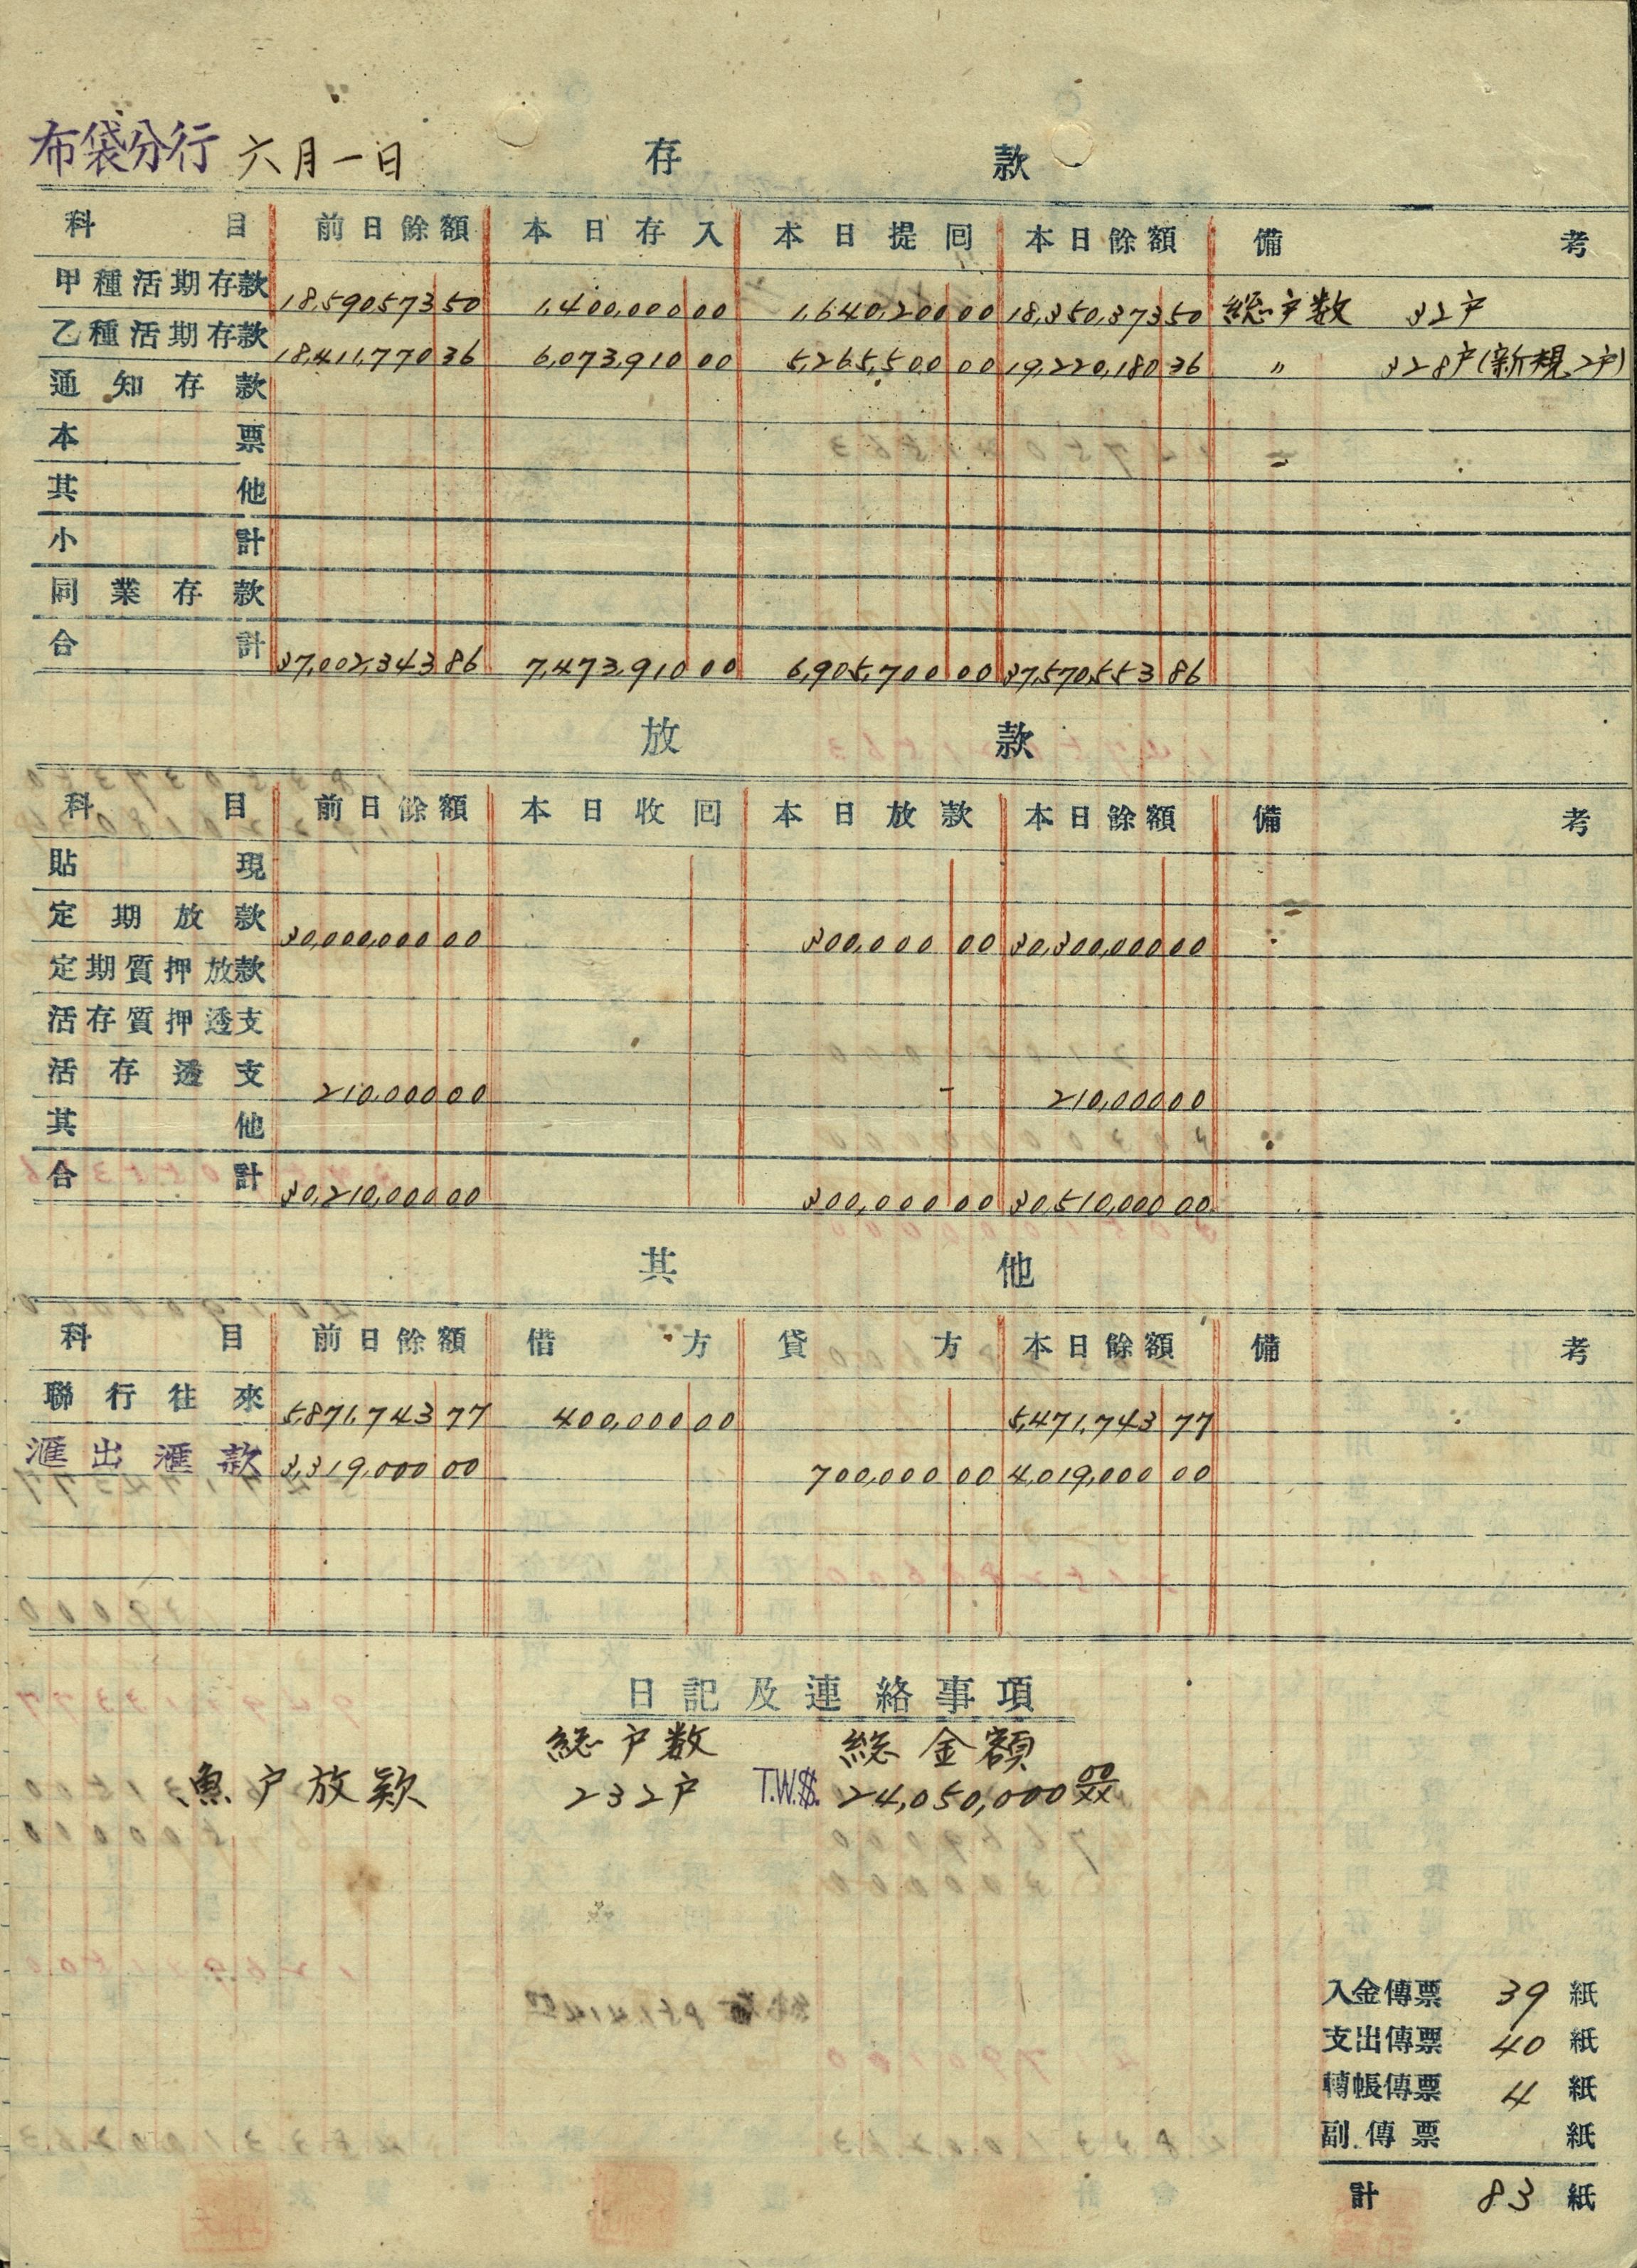 布袋分行 六月一日 存款
科目 前日餘額 本日存入 本日提回 本日餘額 備考
甲種活期存款 18,590,573 50 1,400,000 00 1,640,200 00 18,350,373 50 総户数 32户
乙種活期存款 18,411,770 36 6,073,910 00 5,265,500 00 19,220,180 36 〃 328户(新規2户)
通知存款
本票
其他
小計
同業存款
合計 37,002,343 86 7,473,910 00 6,905,700 00 37,570,553 86
放款
科目 前日餘額 本日收回 本日放款 本日餘額 備考
貼現
定期放款 30,000,000 00 300,000 00 30,300,000 00
定期質押放款
活存質押透支
活存透支 210,000 00 - 210,000 00
其他
合計 30,210,000 00 300,000 00 30,510,000 00
其他
科目 前日餘額 借方 貸方 本日餘額 備考
聯行往來 5,871,743 77 400,000 00 5,471,743 77
滙出滙款 3,319,000 00 700,000 00 4,019,000 00
日記及連絡事項
総户数 総金額
魚户放款 232户 T.W.$. 24,050,000 00/xx
入金傳票 39 紙
支出傳票 40 紙
轉帳傳票 4 紙
副傳票 紙
計 83 紙